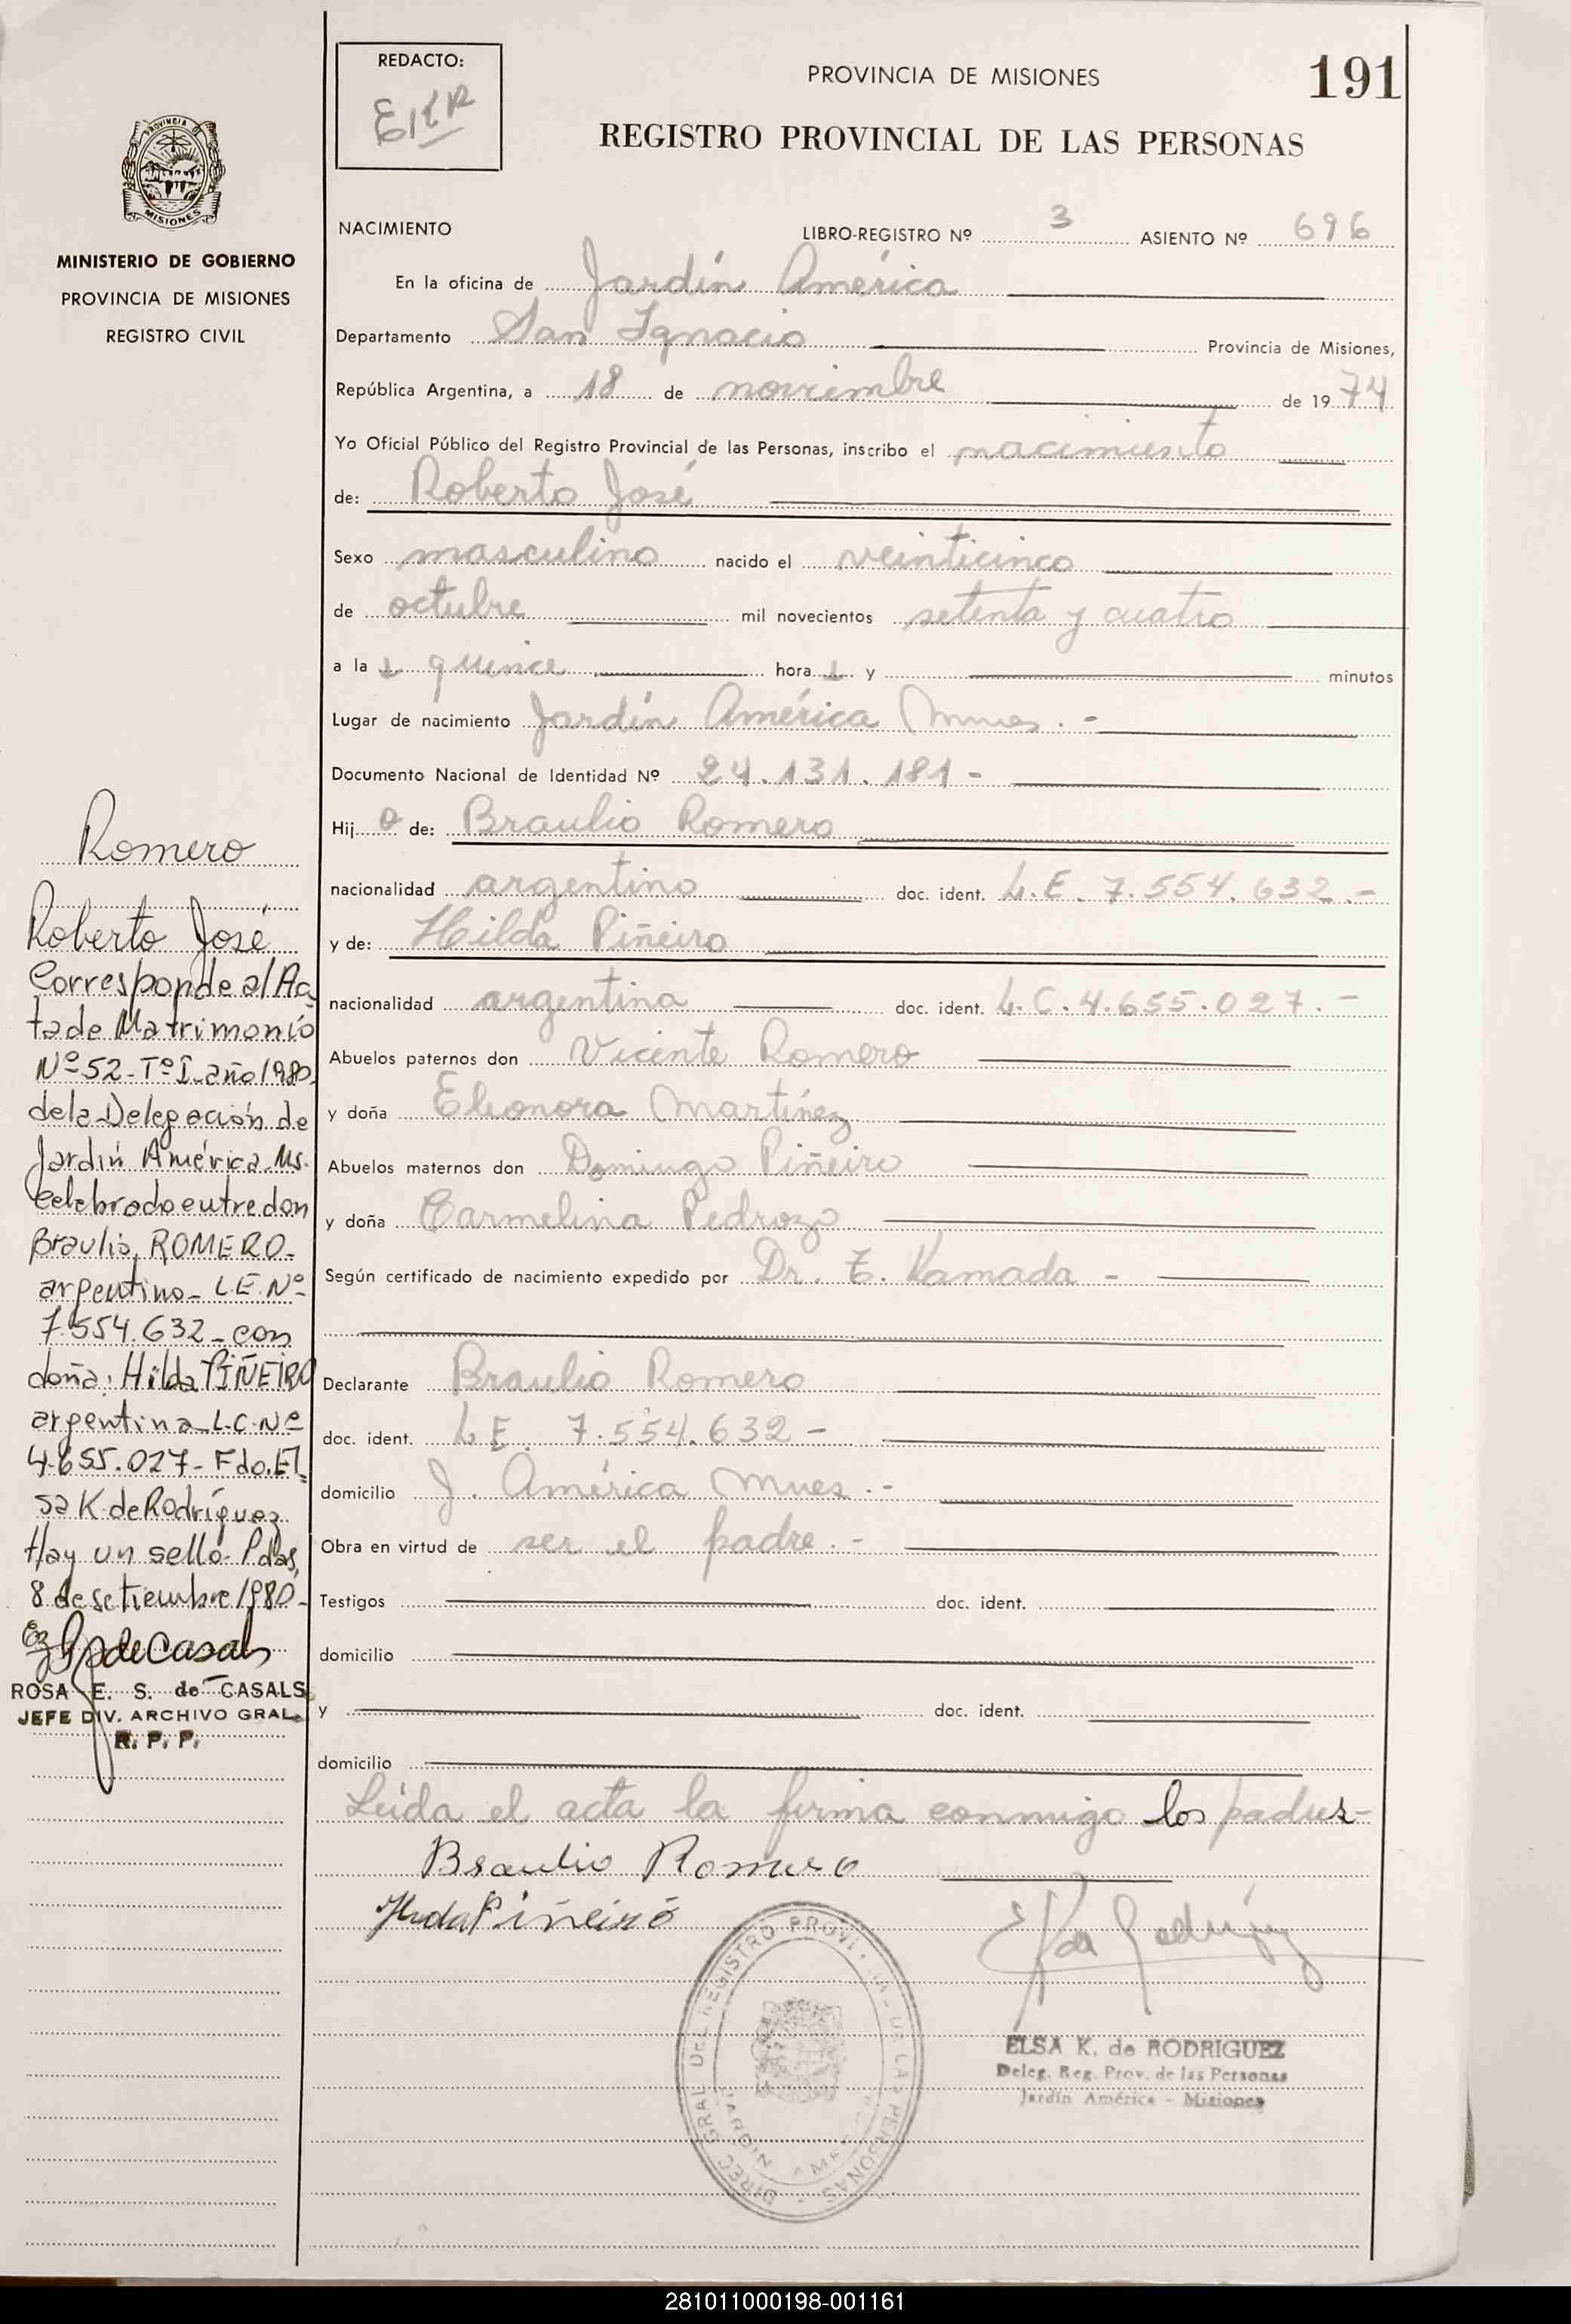 REDACTO:
PROVINCIA DE MISIONES
191
REGISTRO PROVINCIAL DE LAS PERSONAS
PROVINCIA
MISIONES
MINISTERIO DE GOBIERNO
PROVINCIA DE MISIONES
REGISTRO CIVIL
NACIMIENTO LIBRO-REGISTRO Nº 3 ASIENTO Nº 696
En la oficina de Jardín América
Departamento San Ignacio Provincia de Misiones,
República Argentina, a 18 de noviembre de 1974
Yo Oficial Público del Registro Provincial de las Personas, inscribo el nacimiento
de: Roberto José
Sexo masculino nacido el veinticinco
de octubre mil novecientos setenta y cuatro
a la s quince hora s y minutos
Lugar de nacimiento Jardín América Mnes. -
Documento Nacional de Identidad Nº 24.131.181 -
Hij o de: Braulio Romero
nacionalidad argentino doc. ident. L.E. 7.554.632.-
y de: Hilda Piñeiro
nacionalidad argentina doc. ident. L.C. 4.655.027.-
Abuelos paternos don Vicente Romero
y doña Eleonora Martínez
Abuelos maternos don Domingo Piñeiro
y doña Carmelina Pedrozo
Según certificado de nacimiento expedido por Dr. E. Kamada -
Declarante Braulio Romero
doc. ident. L.E. 7.554.632 -
domicilio J. América Mnes. -
Obra en virtud de ser el padre. -
Testigos doc. ident.
domicilio
y doc. ident.
domicilio
Leida el acta la firma conmigo los padres-
Braulio Romero
Hilda Piñeiro
DIREC. GRAL. DEL REGISTRO PROVI DE LAS PERSONAS
JARDIN AMER
ELSA K. de RODRIGUEZ
Deleg. Reg. Prov. de las Personas
Jardín América - Misiones
Romero
Roberto José
Corresponde al Ac-
ta de Matrimonio
Nº 52-Tº I-año 1980,
de la Delegación de
Jardín América Ms.
Celebrado entre don
Braulio ROMERO-
argentino- L.E. Nº
7.554.632- con
doña: Hilda PIÑEIRO
argentina-L.C. Nº
4.655.027- Fdo. El-
sa K. de Rodríguez
Hay un sello- Pdas,
8 de setiembre 1980-
de Casals
ROSA E. S. de CASALS
JEFE DIV. ARCHIVO GRAL.
R. P. P.
281011000198-001161